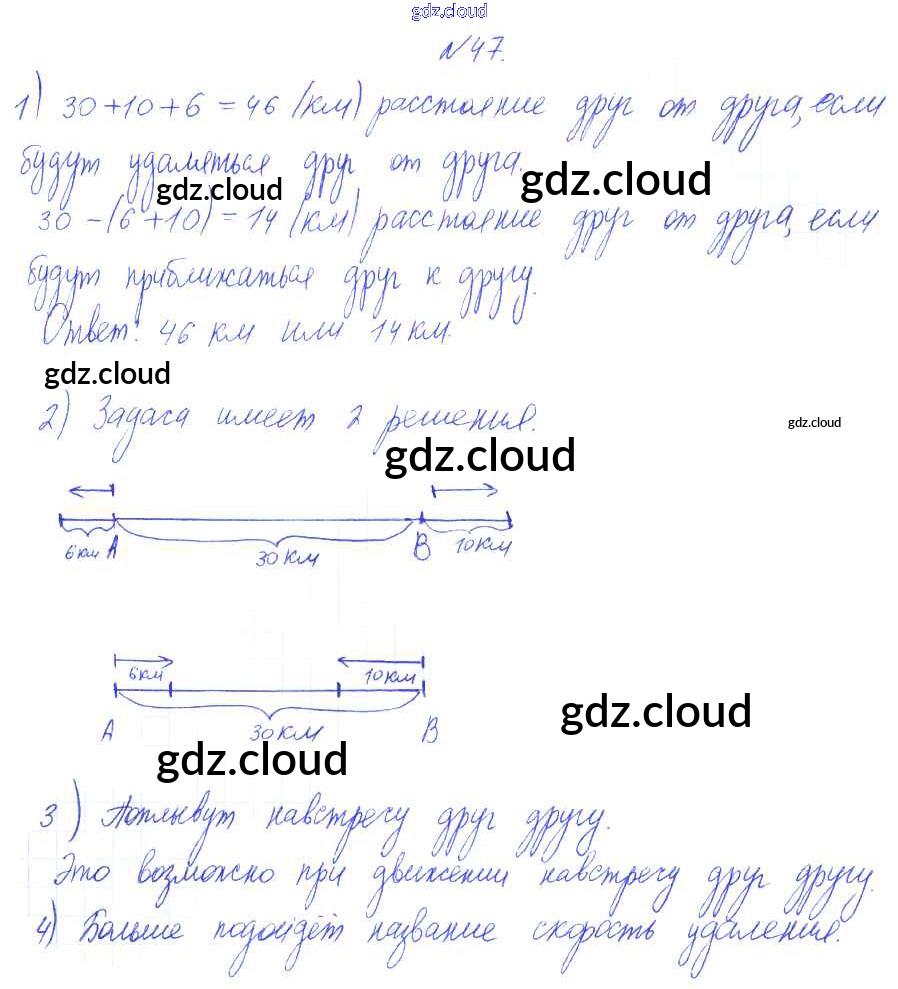 gdz.cloud
№47.
1) 30+10+6=46 (км) расстояние друг от друга, если
будут удаляться друг от друга.
gdz.cloud gdz.cloud
30-(6+10)=14 (км) расстояние друг от друга, если
будут приближаться друг к другу.
Ответ: 46 км или 14 км.
gdz.cloud
2) Задача имеет 2 решения.
gdz.cloud
gdz.cloud
6км A 30км B 10км
6км 10км
A 30км B
gdz.cloud
gdz.cloud
3) Поплывут навстречу друг другу.
Это возможно при движении навстречу друг другу.
4) Больше подойдёт название скорость удаления.